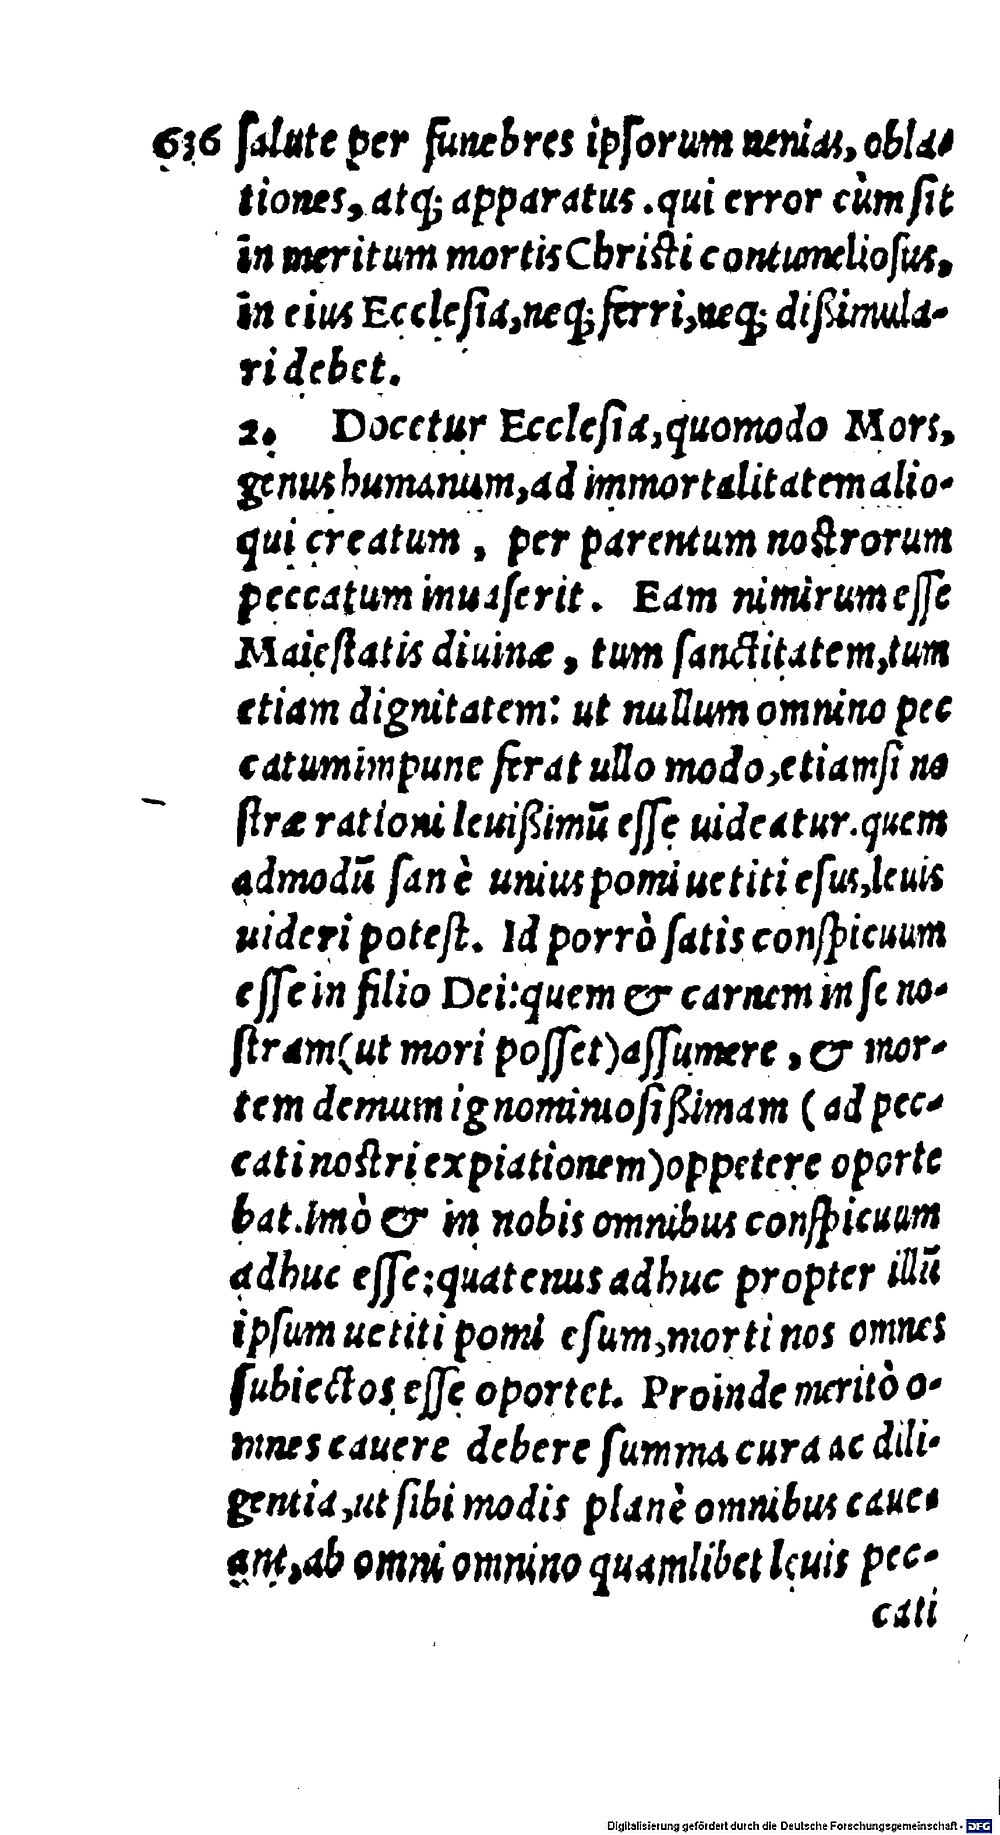 636 ſalute per funebres ipſorum nenias, obla-
tiones, atq; apparatus. qui error cùm ſit
in meritum mortis Chriſti contumelioſus,
in eius Eccleſia, neq; ferri, neq; dißimula-
ri debet.
2. Docetur Eccleſia, quomodo Mors,
genus humanum, ad immortalitatem alio-
qui creatum, per parentum noſtrorum
peccatum inuaſerit. Eam nimirum eſſe
Maieſtatis diuinæ, tum ſanctitatem, tum
etiam dignitatem: ut nullum omnino pec
catum impune ferat ullo modo, etiamſi no
ſtræ rationi leuißimū eſſe uideatur. quem
admodū ſanè unius pomi uetiti eſus, leuis
uideri poteſt. Id porrò ſatis conſpicuum
eſſe in filio Dei: quem & carnem in ſe no-
ſtram (ut mori poſſet) aſſumere, & mor-
tem demum ignominioſißimam (ad pec-
cati noſtri expiationem) oppetere oporte
bat. Imò & in nobis omnibus conſpicuum
adhuc eſſe: quatenus adhuc propter illū
ipſum uetiti pomi eſum, morti nos omnes
ſubiectos eſſe oportet. Proinde meritò o-
mnes cauere debere ſumma cura ac dili-
gentia, ut ſibi modis planè omnibus caue-
ant, ab omni omnino quamlibet leuis pec-
cati
Digitalisierung gefördert durch die Deutsche Forschungsgemeinschaft - DFG